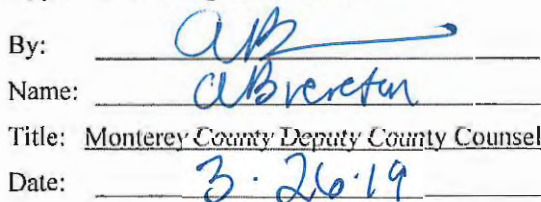 By: AB
Name: ABrereton
Title: Monterey County Deputy County Counsel
Date: 3·26·19